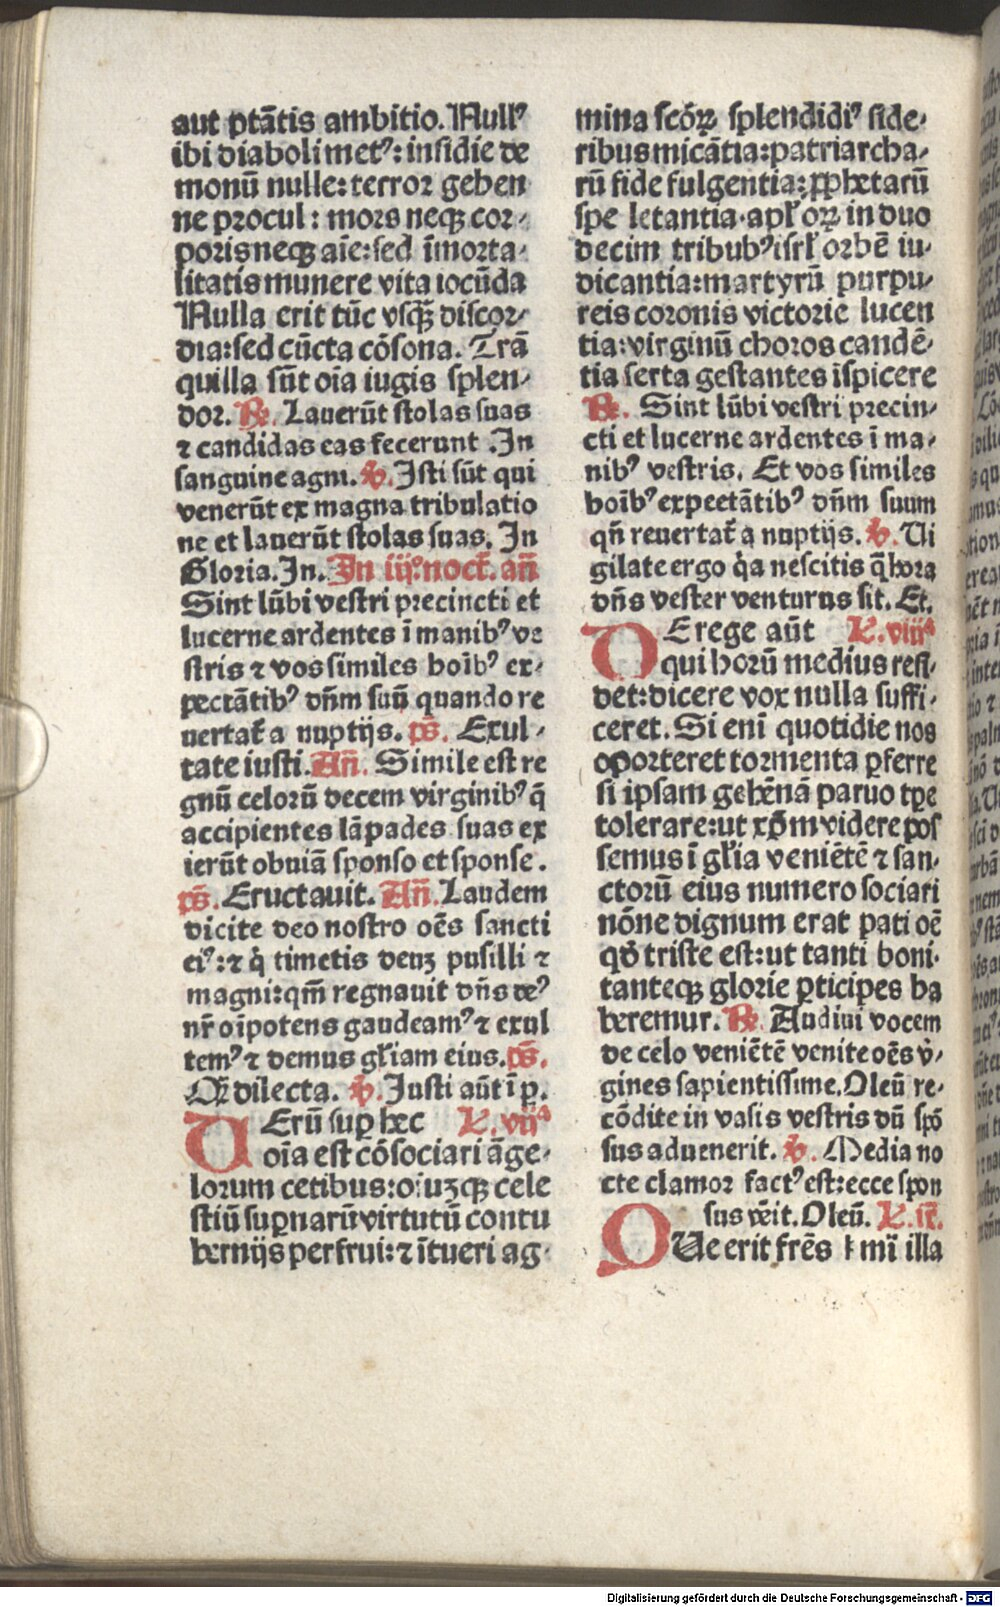 aut ptātis ambitio. Nullꝰ
ibi diaboli metꝰ: insidie de
monū nulle: terror gehen
ne procul: mors neqꝫ cor⸗
poris neqꝫ aīe: sed īmorta⸗
litatis munere vita iocūda
Nulla erit tūc vsqꝫ discor⸗
dia: sed cūcta cōsona. Trā
quilla sūt oīa iugis splen⸗
dor. R. Lauerūt stolas suas
⁊ candidas eas fecerunt. In
sanguine agni. V. Isti sūt qui
venerūt ex magna tribulatio
ne et lauerūt stolas suas. In
Gloria. In. In iijº. noct̄. an̄
Sint lūbi vestri precincti et
lucerne ardentes ī manibꝰ ve
stris ⁊ vos similes hoībꝰ ex⸗
pectātibꝰ dn̄m suū quando re
uertat̄ a nuptijs. ps̄. Exul⸗
tate iusti. An̄. Simile est re
gnū celorū decem virginibꝰ q̄
accipientes lāpades suas ex
ierūt obuiā sponso et sponse.
ps̄. Eructauit. An̄. Laudem
dicite deo nostro oēs sancti
eiꝰ: ⁊ q̇ timetis deuꝫ pusilli ⁊
magni: qm̄ regnauit dn̄s deꝰ
nr̄ oīpotens gaudeamꝰ ⁊ exul
temꝰ ⁊ demus gl̄iam eius. ps̄.
Q̄ dilecta. V. Iusti aūt ī p̄.
UErū suꝑ hec L. vijᵃ
oīa est cōsociari āge⸗
lorum cetibus: oiuꝫqꝫ cele
stiū suꝑnarū virtutū contu
bernijs perfrui: ⁊ ītueri ag⸗
mina scōꝝ splendidiꝰ side⸗
ribus micātia: patriarcha⸗
rū fide fulgentia: ꝓphetarū
spe letantia. apl̄oꝝ in duo
decim tribubꝰ isrl̄ orbē iu⸗
dicantia: martyrū purpu⸗
reis coronis victorie lucen
tia: virginū choros candē⸗
tia serta gestantes īspicere
R. Sint lūbi vestri precin⸗
cti et lucerne ardentes ī ma⸗
nibꝰ vestris. Et vos similes
hoībꝰ expectātibꝰ dn̄m suum
qn̄ reuertat̄ a nuptijs. V. Ui
gilate ergo q̇a nescitis q̄ hora
dn̄s vester venturus sit. Et.
DE rege aūt L. viijᵃ
qui horū medius resi⸗
det: dicere vox nulla suffi⸗
ceret. Si eni quotidie nos
oporteret tormenta ꝑferre
si ipsam gehēnā paruo tp̄e
tolerare: ut xp̄m videre pos
semus ī gl̄ia veniētē ⁊ san⸗
ctorū eius numero sociari
nōne dignum erat pati oē
qd̄ triste est: ut tanti boni⸗
tanteqꝫ glorie ꝑticipes ha
beremur. R. Audiui vocem
de celo veniētē venite oēs v̇⸗
gines sapientissime. Oleū re⸗
cōdite in vasis vestris dū spō
sus aduenerit. V. Media no
cte clamor factꝰ est: ecce spon
sus vēit. Oleū. L. ix.
OUe erit frēs kmī illa
Digitalisierung gefördert durch die Deutsche Forschungsgemeinschaft - DFG